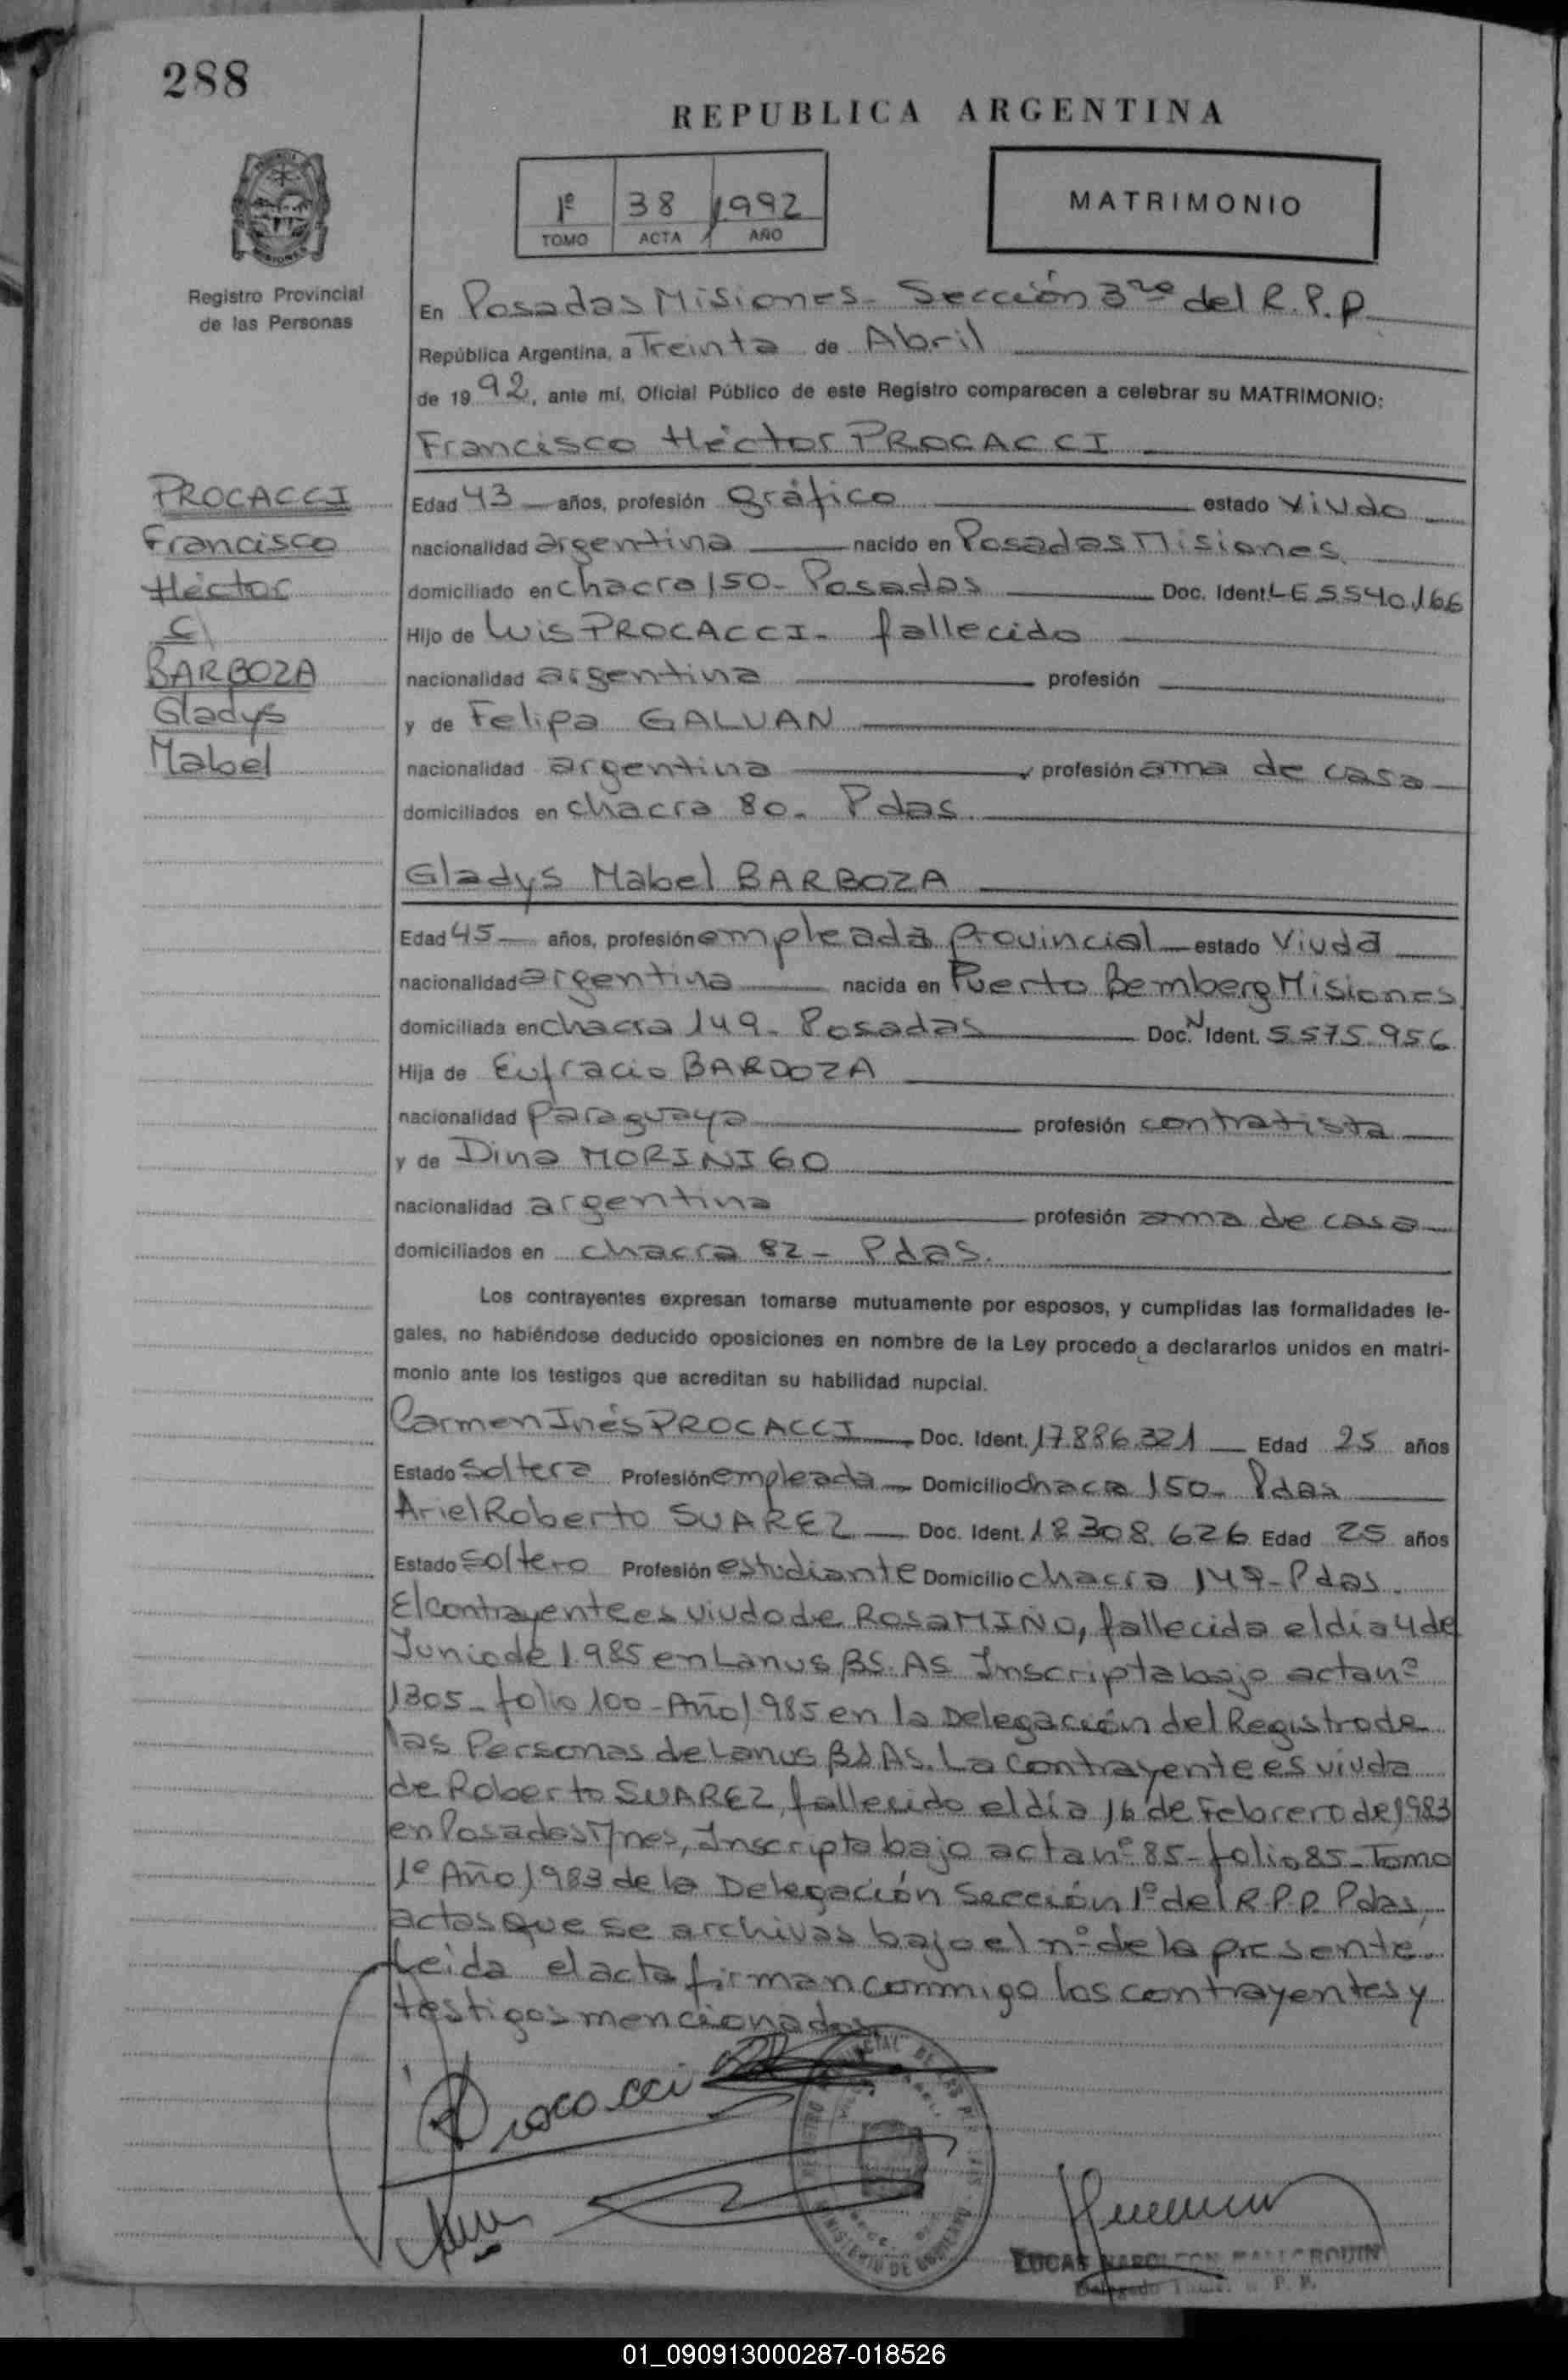 288
REPUBLICA ARGENTINA
1º 38 1992
TOMO ACTA AÑO
MATRIMONIO
Registro Provincial
de las Personas
En Posadas Misiones - Sección 3ra del R.P.P.
República Argentina, a Treinta de Abril
de 1992, ante mí, Oficial Público de este Registro comparecen a celebrar su MATRIMONIO:
Francisco Héctor PROCACCI
PROCACCI
Francisco
Héctor
c/
BARBOZA
Gladys
Mabel
Edad 43 años, profesión gráfico estado viudo
nacionalidad argentina nacido en Posadas Misiones
domiciliado en chacra 150 - Posadas Doc. Ident. LE 5540.166
Hijo de Luis PROCACCI - fallecido
nacionalidad argentina profesión
y de Felipa GALVAN
nacionalidad argentina profesión ama de casa
domiciliados en chacra 80 - Pdas
Gladys Mabel BARBOZA
Edad 45 años, profesión empleada provincial estado viuda
nacionalidad argentina nacida en Puerto Bemberg Misiones
domiciliada en chacra 149 - Posadas Doc. Nº Ident. 5.575.956
Hija de Eufracio BARBOZA
nacionalidad Paraguaya profesión contratista
y de Dina MORINIGO
nacionalidad argentina profesión ama de casa
domiciliados en chacra 82 - Pdas.
Los contrayentes expresan tomarse mutuamente por esposos, y cumplidas las formalidades le-
gales, no habiéndose deducido oposiciones en nombre de la Ley procedo a declararlos unidos en matri-
monio ante los testigos que acreditan su habilidad nupcial.
Carmen Inés PROCACCI Doc. Ident. 17.886.321 Edad 25 años
Estado Soltera Profesión empleada Domicilio chacra 150 - Pdas
Ariel Roberto SUAREZ Doc. Ident. 18308.626 Edad 25 años
Estado Soltero Profesión estudiante Domicilio chacra 149 - Pdas.
El contrayente es viudo de Rosa MIÑO, fallecida el día 4 de
Junio de 1.985 en Lanus BS. AS Inscripta bajo acta nº
1305 - folio 100 - Año 1985 en la Delegación del Registro de
las Personas de Lanus BS AS. La contrayente es viuda
de Roberto SUAREZ, fallecido el día 16 de Febrero de 1983
en Posadas Mnes, Inscripta bajo acta nº 85 - folio 85 - Tomo
1º Año 1983 de la Delegación Sección 1º del R.P.P. Pdas,
actas que se archivas bajo el nº de la presente.
Leida el acta firman conmigo los contrayentes y
testigos mencionados.
Procacci
LUCAS NAPOLEON
01_090913000287-018526